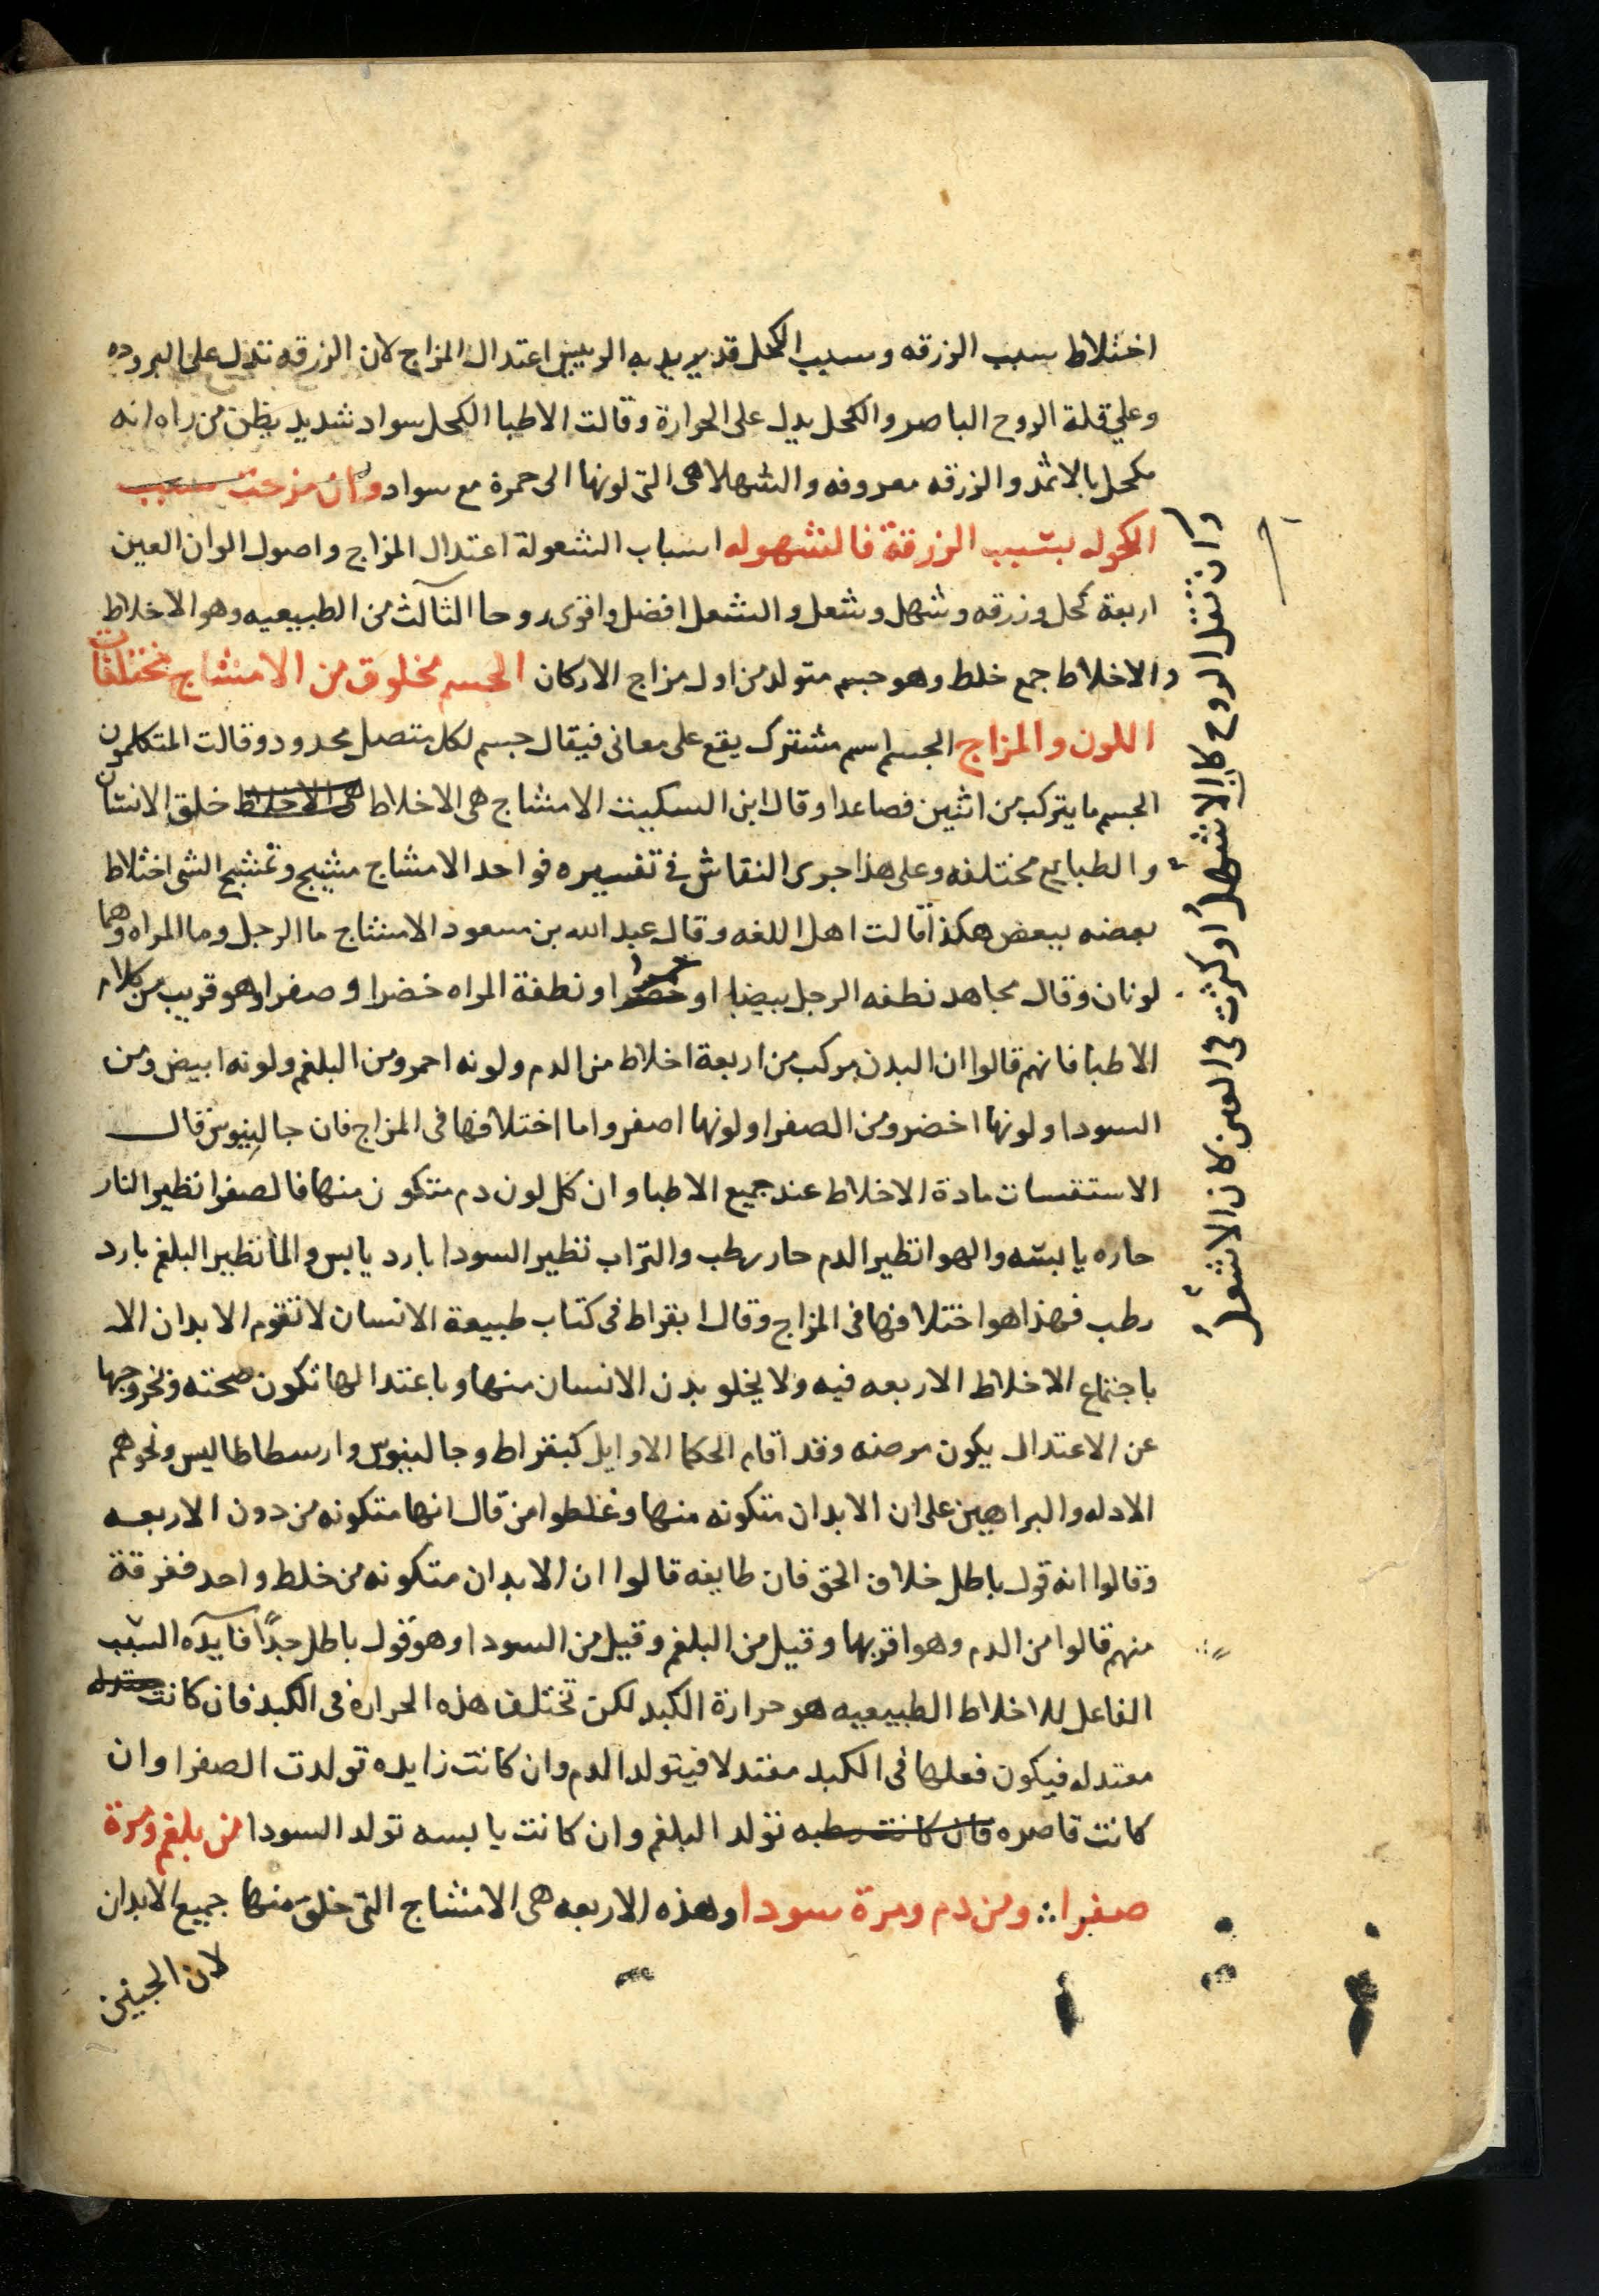 اختلاط سبب الزرقه وسبب الكحل قد يريد به الرييس اعتدال المزاج لان الزرقه تدل على البروده
وعلي قلة الروح الباصر والكحل يدل على الحرارة وقالت الاطبا الكحل سواد شديد يظن من راه انه
مكحل بالاثمد والزرقه معروفه والشهلا هى التى لونها الى حمرة مع سواد وان مزجت سبب
الكحوله بسبب الزرقة فالشهوله اسباب الشعولة اعتدال المزاج واصول الوان العين
اربعة كحل وزرقه وشهل وشعل والشعل افضل واقوى روحا الثالث من الطبيعيه وهو الاخلاط
والاخلاط جمع خلط وهو جسم متولد من اول مزاج الاركان الجسم مخلوق من الامشاج مختلفات
اللون والمزاج الجسم اسم مشترك يقع على معانى فيقال جسم لكل متصل محدود وقالت المتكلمون
الجسم ما يتركب من اثنين فصاعدا وقال ابن السكيت الامشاج هى الاخلاط هى الاخلاط خلق الانسان
والطبايع مختلفه وعلى هذا جرى النقاش فى تفسيره فواحد الامشاج مشيج وتمشيج الشى اختلاط
بعضه ببعض هكذا قالت اهل اللغه وقال عبد الله بن مسعود الامشاج ما الرجل وما المراه وهما
لونان وقال مجاهد نطفه الرجل بيضا او حمرا ونطفة المراه خضرا وصفرا وهو قريب من كلام
الاطبا فانهم قالوا ان البدن مركب من اربعة اخلاط من الدم ولونه احمر ومن البلغم ولونه ابيض ومن
السودا ولونها اخضر ومن الصفرا ولونها اصفر واما اختلافها فى المزاج فان جالينوس قال
الاستقسات مادة الاخلاط عند جميع الاطبا وان كل لون دم متكون منها فالصفرا نظير النار
حاره يابسه والهوا نظير الدم حار رطب والتراب نظير السودا بارد يابس والما نظير البلغم بارد
رطب فهذا هو اختلافها فى المزاج وقال ابقراط فى كتاب طبيعة الانسان لا تقوم الابدان الا
باجتماع الاخلاط الاربعه فيه ولا يخلو بدن الانسان منها وباعتدالها تكون صحته وبخروجها
عن الاعتدال يكون مرضه وقد اقام الحكما الاوايل كبقراط وجالينوس وارسطاطاليس ونحوهم
الادله والبراهين على ان الابدان متكونه منها وغلطوا من قال انها متكونه من دون الاربعه
وقالوا انه قول باطل خلاف الحق فان طايفه قالوا ان الابدان متكونه من خلط واحد ففرقة
منهم قالوا من الدم وهو اقربها وقيل من البلغم وقيل من السودا وهو قول باطل جدًا فايده السبب
الفاعل للاخلاط الطبيعيه هو حرارة الكبد لكن تختلف هذه الحراره فى الكبد فان كانت
معتدله فيكون فعلها فى الكبد معتدلا فيتولد الدم وان كانت زايده تولدت الصفرا وان
كانت قاصره فان كانت رطبه تولد البلغم وان كانت يابسه تولد السودا من بلغم ومرة
صفرا ومن دم ومرة سودا وهذه الاربعه هى الامشاج التى خلق منها جميع الابدان
لان الجنين
وان تقل الروح كان الاشهل او كثرت فى العين كان الاشعل